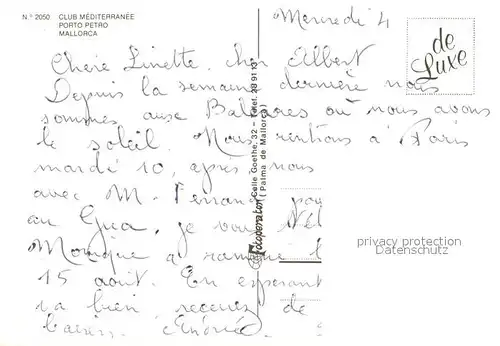 N.° 2050 CLUB MÉDITERRANÉE
PORTO PETRO
MALLORCA
Mercredi 4
de Luxe
Chère Linette, cher Albert
Depuis la semaine dernière nous
sommes aux Baléares où nous avons
le soleil. Nous rentrons à Paris
mardi 10, après nous
avec M.
au je
Monique a
15 août. En espérant
va bien, recevez de
baisers. Andrée
Fotoperaton Calle Goethe, 32 - Telef. 28 91 13
(Palma de Mallorca)
privacy protection
Datenschutz